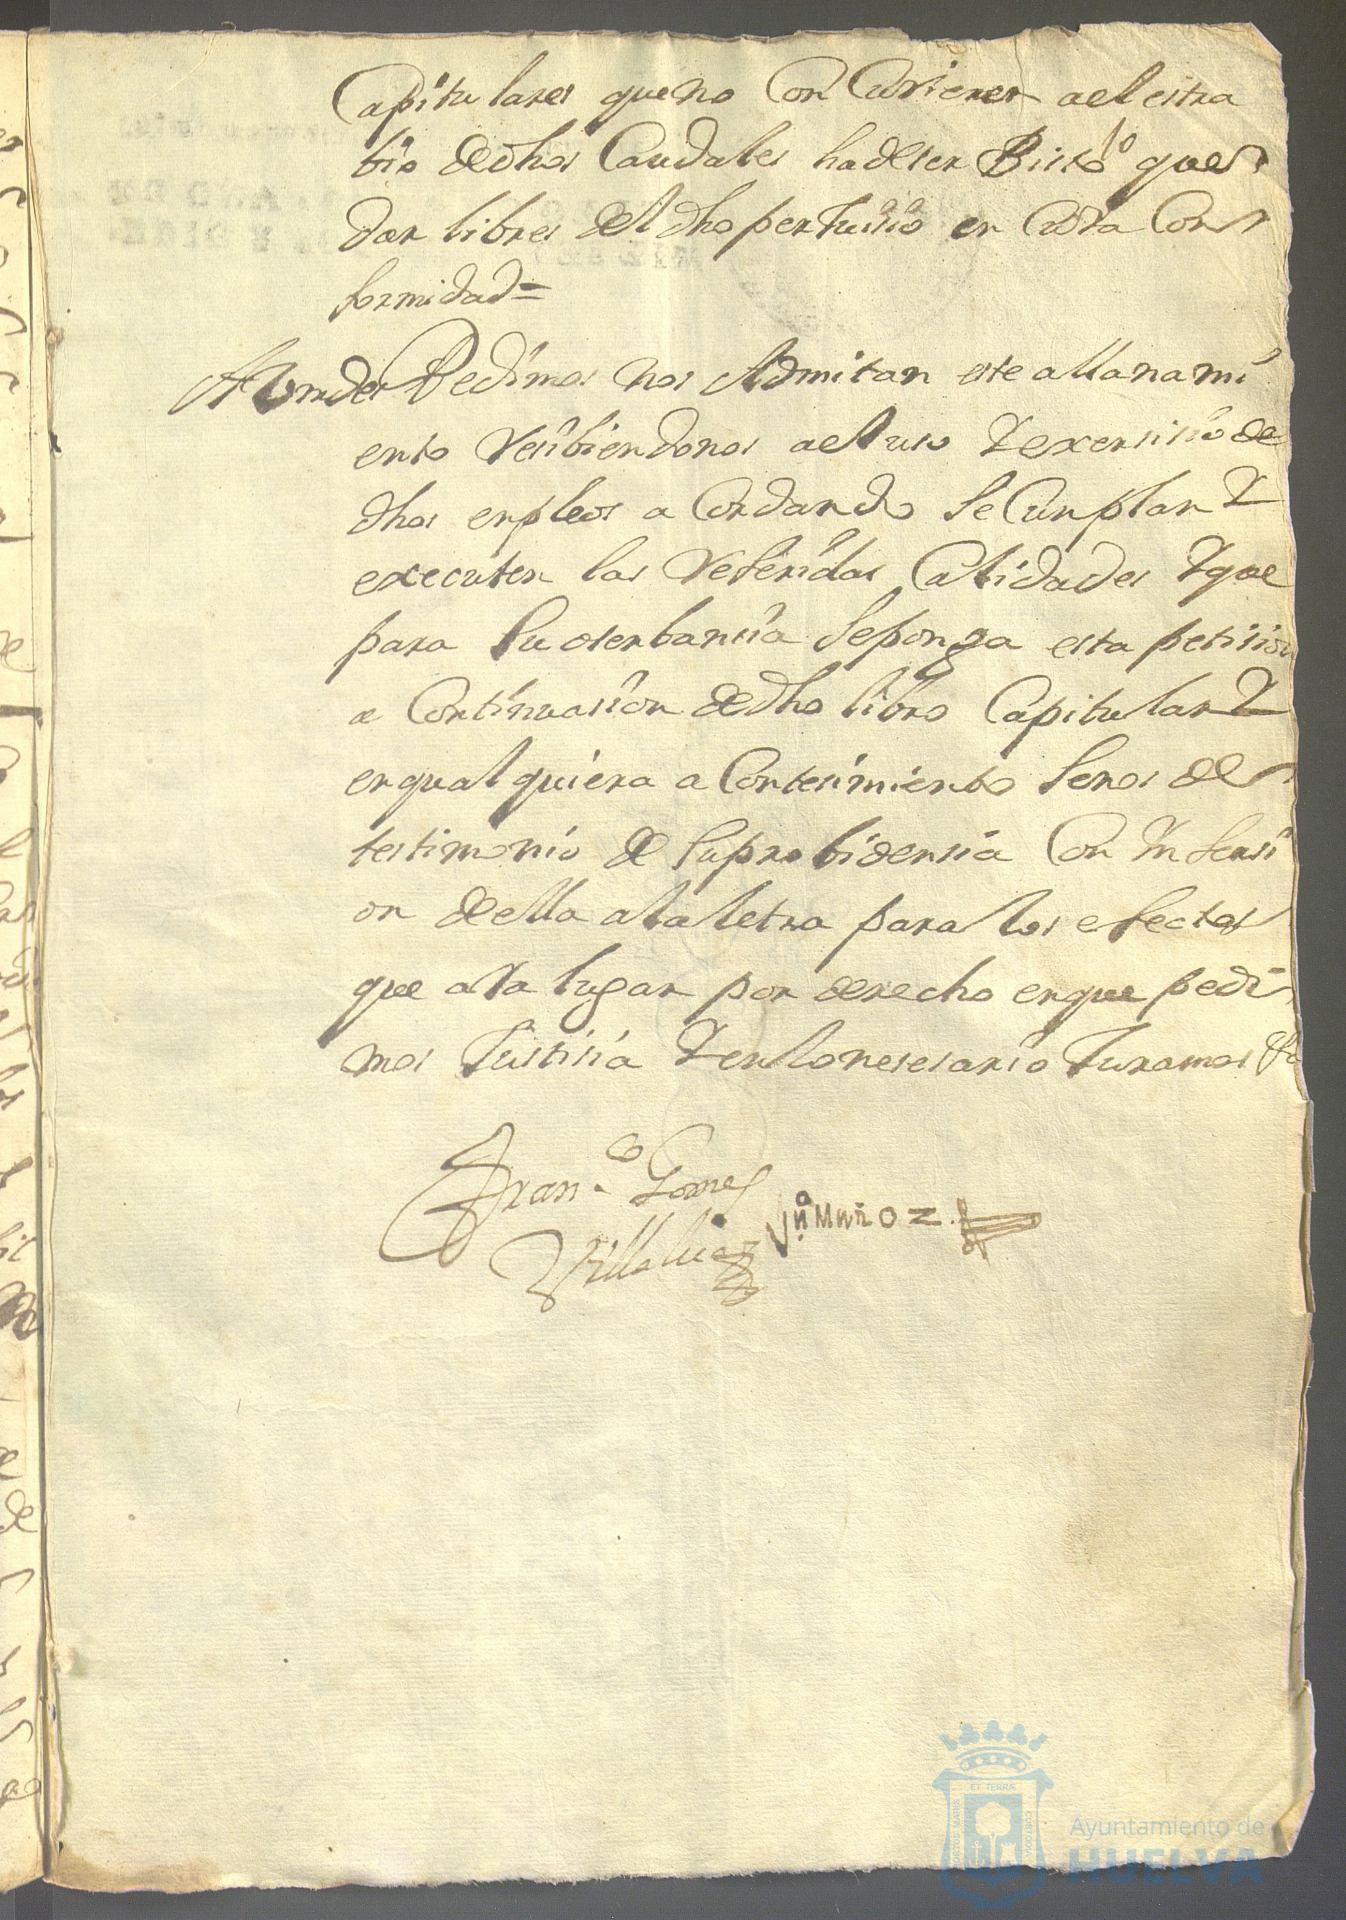 Capitulares que no Concurieren ael estra
bio de dhos Caudales ha de ser Bisto que
dar libres del dho perJuisio en Cuia Con
formidad=
A Vmdes Pedimos nos Admitan este allanami
ento Resibiendonos ael uso Y exersisio de
dhos enpleos a Cordando se Cunplan Y
executen las Referidas Calidades Y que
para su oserbansia se ponga esta petision
a Continuasion de dho libro Capitular Y
en qual quiera a Contesimiento se nos de
testimonio de su probidensia Con Ynsersi
on de ella a la letra para los efectos
que aIa lugar por derecho en que pedi
mos Justisia Y en lo nesesario Juramos &a
Fran.co Gomes
Jn. Muñoz
ET TERRÆ
Ayuntamiento de
HUELVA